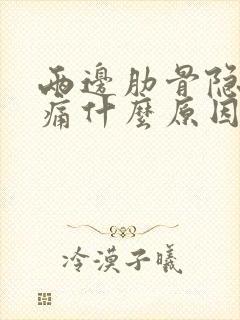 兩邊肋骨隐
痛什麼原因
冷漠子曦